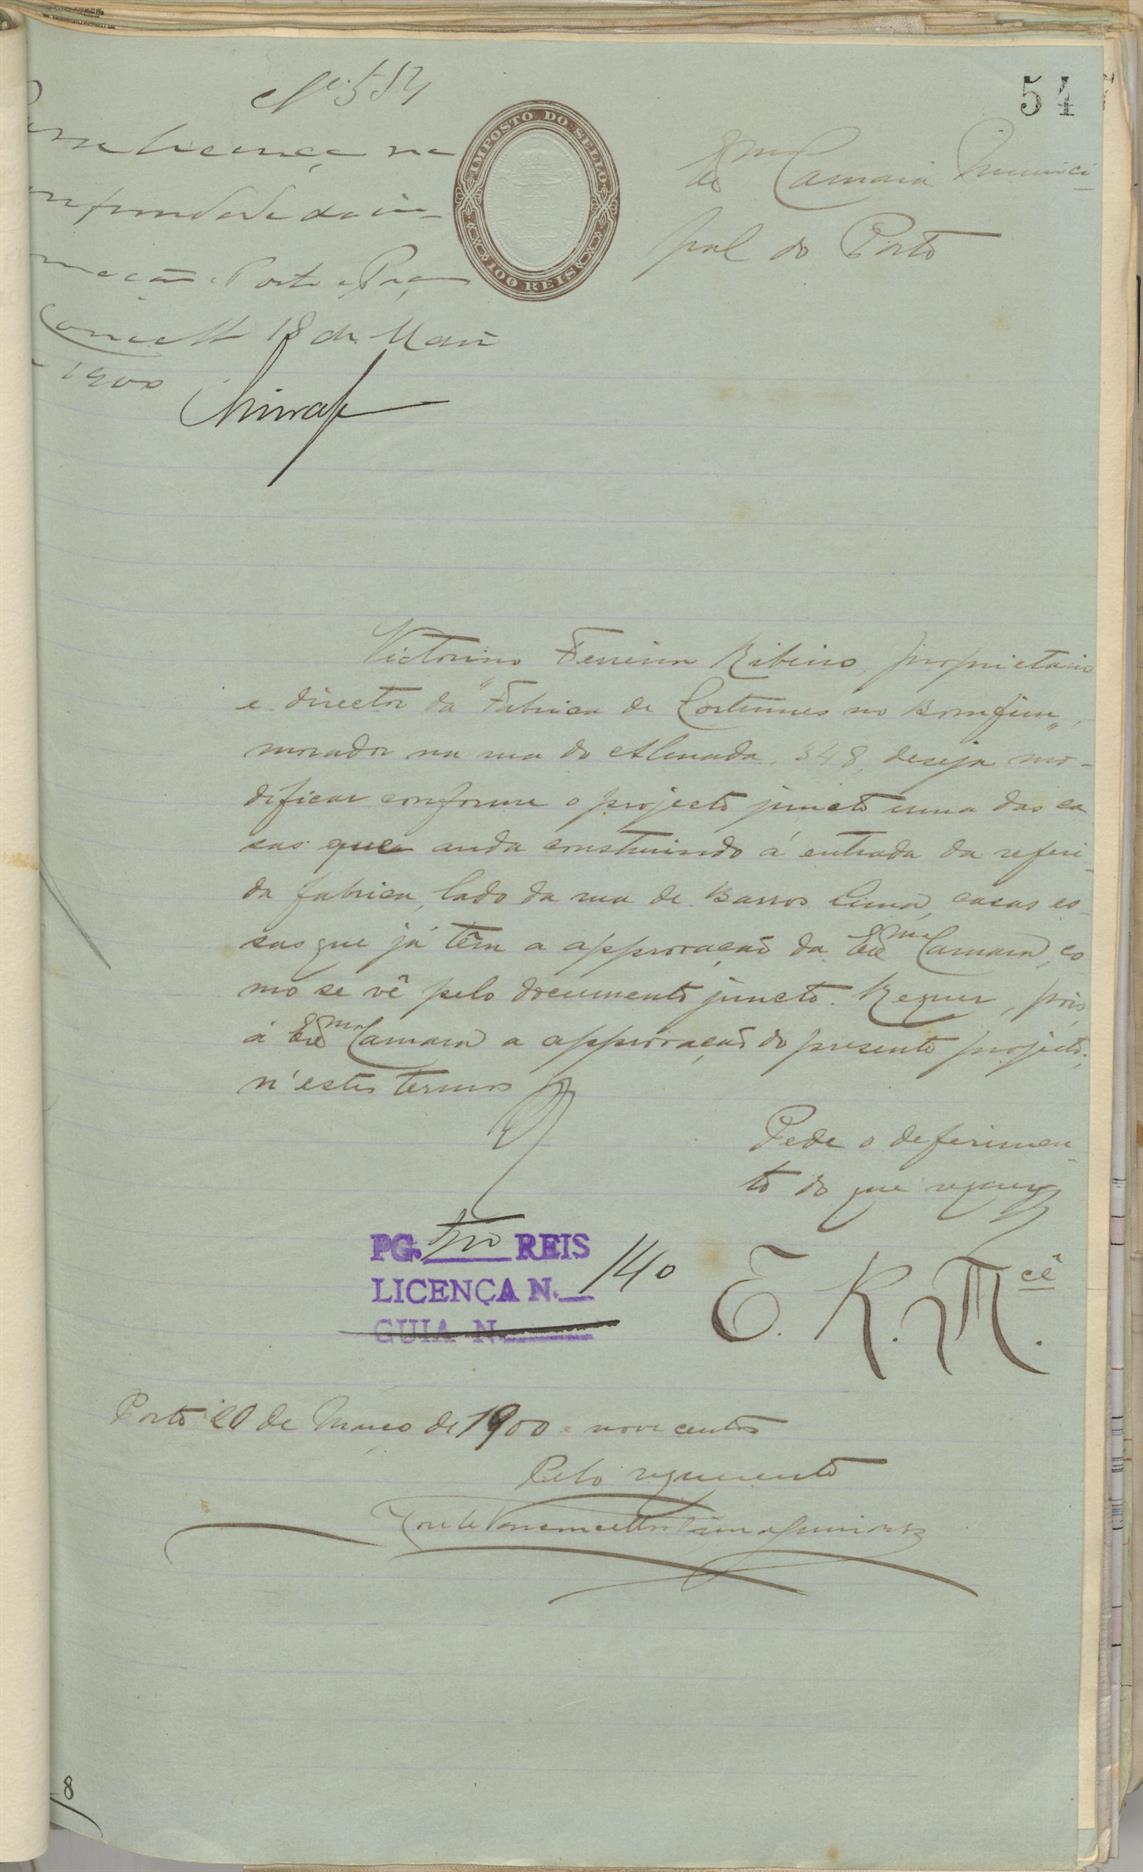 54
Nº 584
licença na
Porto e Paços
18 de
1900
IMPOSTO DO SELLO
100 REIS
Exma Camara Munici
pal do Porto
Victorino Ferreira Ribeiro, proprietario
e director da "Fabrica de Cortumes no Bomfim",
morador na rua do Almada, 348, deseja mo-
dificar conforme o projecto juncto uma das ca
sas que anda construindo á entrada da referi-
da fabrica, lado da rua de Barros Lima, casas es-
sas que já têm a approvação da Exma Camara, co
mo se vê pelo documento juncto. Requer, pois
á Exma Camara a approvação do presente projecto,
n'estes termos
Pede o deferimen-
to do que requer
E. R. Mcê
PG. 500 REIS
LICENÇA N. 140
GUIA N.
Porto 20 de Março de 1900 e nove centos
Pelo requerente
8